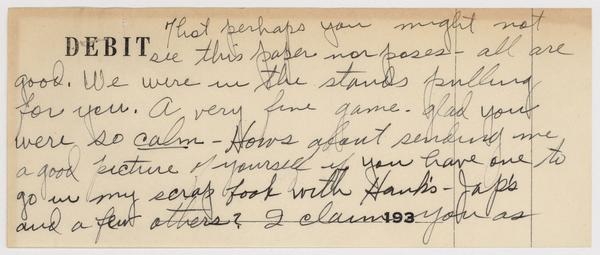 That perhaps you might not
DEBIT see this paper nor poses - all are
good. We were in the stands pulling
for you. A very fine game. glad you
were so calm - Hows about sending me
a good picture of yourself if you have one to
go in my scrap book with Hank's - Jap's
and a few others? I claim 193 you as